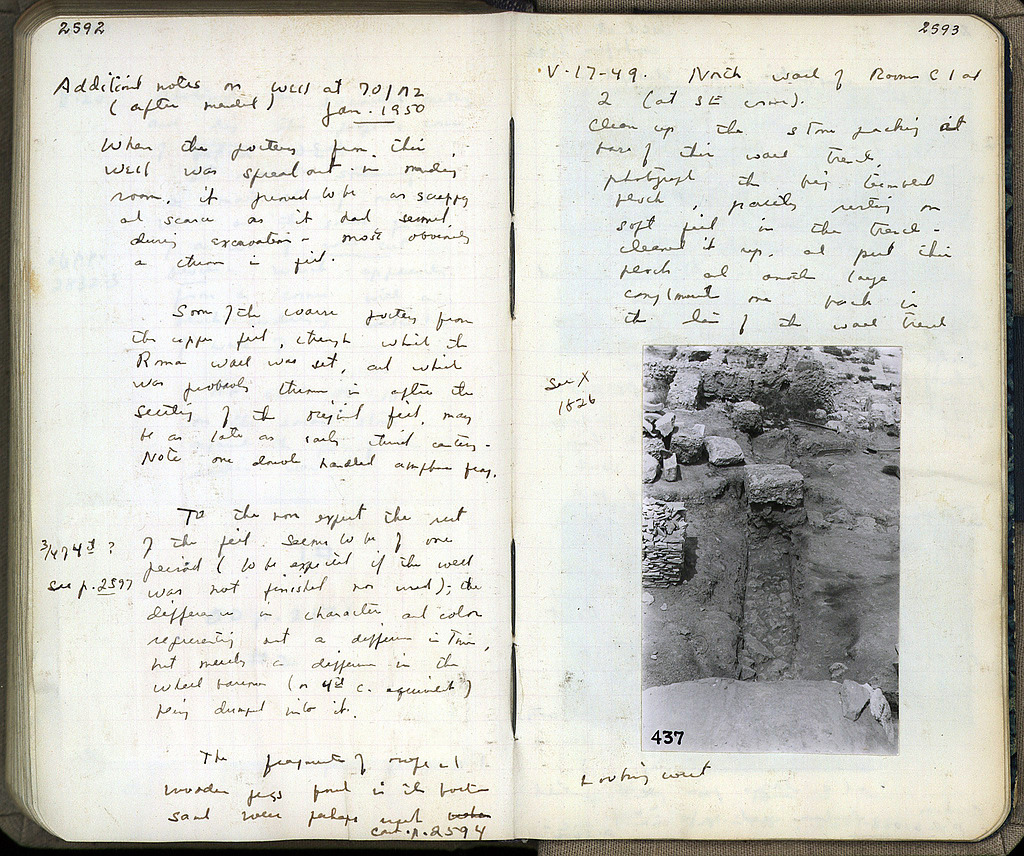 2592
Additional notes on well at 70/ΛΖ
(after mended) Jan. 1950
When the pottery from this
well was spread out in mending
room, it proved to be as scrappy
and scarce as it had seemed
during excavation - most obviously
a thrown in fill.
Some of the coarse pottery from
the upper fill, through which the
Roman wall was set, and which
was probably thrown in after the
settling of the original fill, may
be as late as early third century.
Note one double handled amphora frag.
To the non expert the rest
3/4 of 4th ? of the fill seems to be of one
see p. 2597 period (to be expected if the well
was not finished nor used); the
difference in character and color
representing not a difference in time,
but merely a difference in the
wheel barrow (or 4th c. equivalent)
being dumped into it.
The fragments of rope and
wooden pegs found in the bottom
sand were perhaps
cont. p. 2594
2593
V-17-49. North wall of Rooms C 1 and
2 (at SE corner).
Clean up the stone packing at
base of this wall trench,
photograph the big trimmed
block, partly resting on
soft fill in the trench -
cleared it up, and put this
block and another large
conglomerate one back in
the line of the wall trench
See X
1826
437
Looking west